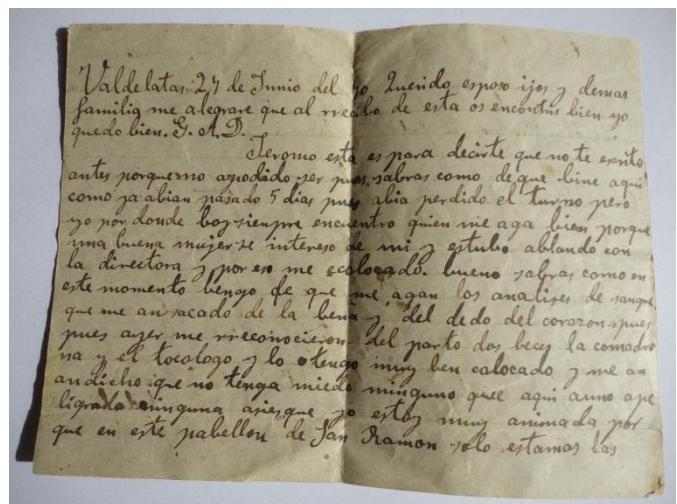 Valdelatas 27 de Junio del 40 Querido esposo ijos y demas
familia me alegrare que al rrecibo de esta os encontris bien yo
quedo bien. G. A. D.
Jeromo esta es para decirte que no te escrito
antes porque no apodido ser pues sabras como de que bine aqui
como ya abian pasado 5 dias pues abia perdido el turno pero
yo por donde boy siempre encuentro quien me aga bien porque
una buena mujer se intereso de mi y estubo ablando con
la directora y por eso me colocado. bueno sabras como en
este momento bengo de que me agan los analises de sangre
que me an sacado de la bena y del dedo del corazon pues
pues ayer me rreconocieron del parto dos beces la comadro
na y el tocologo y lo tengo muy ben colocado y me an
an dicho que no tenga miedo ninguno quee aqui a uno ape
ligrado ninguna asiesque yo estoy muy animada por
que en este pabellon de San Ramon solo estamos las